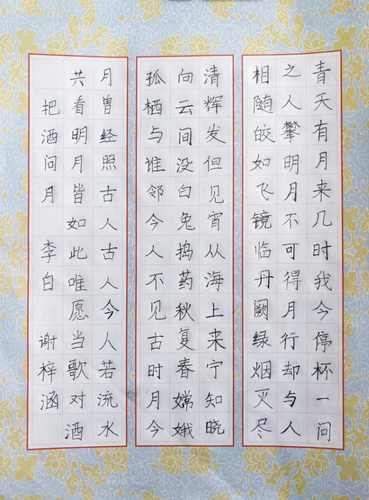 青天有月来几时我今停杯一问
之人攀明月不可得月行却与人
相随皎如飞镜临丹阙绿烟灭尽
清辉发但见宵从海上来宁知晓
向云间没白兔捣药秋复春嫦娥
孤栖与谁邻今人不见古时月今
月曾经照古人古人今人若流水
共看明月皆如此唯愿当歌对酒
把酒问月 李白 谢梓涵